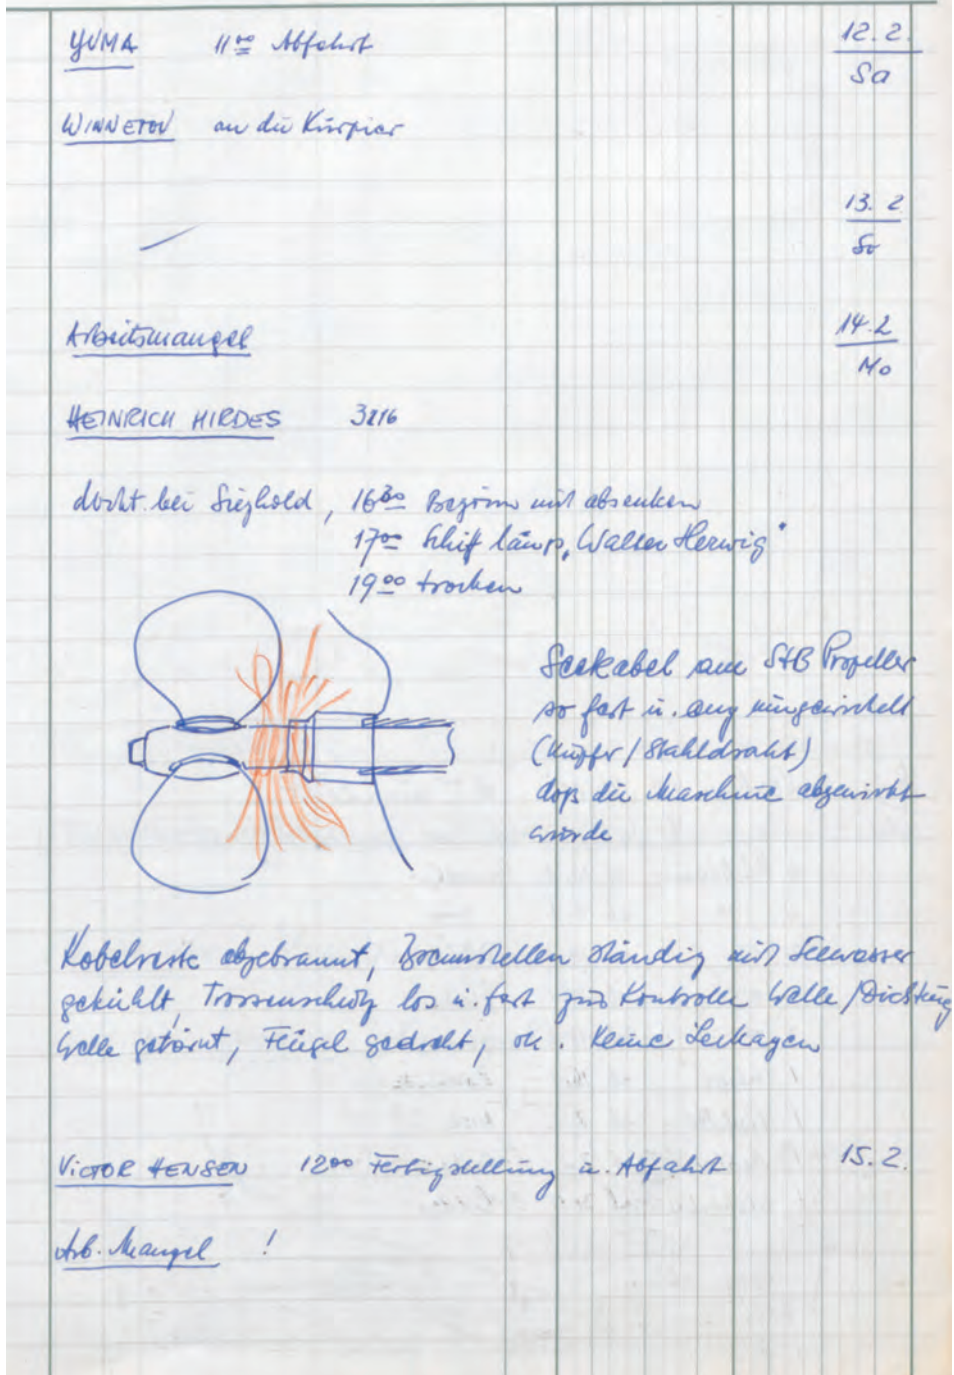 YUMA 11⁰⁰ Abfahrt 12.2.
Sa
WINNETOU an die Kürpier
13.2
So
Arbeitsmangel 14.2
Mo
HEINRICH HIRDES 3216
dockt bei Sieghold, 16³⁰ Beginn mit absenken
17⁰⁰ Schiff längs „Walter Herwig"
19⁰⁰ trocken
Seekabel am StB Propeller
so fest u. eng
(Kupfer/Stahldraht)
daß die Maschine abgewürgt
wurde
Kabelreste abgebrannt, Brennstellen ständig mit Seewasser
gekühlt, Trossenschutz los u. fest zur Kontrolle Welle/Dichtung
Welle getörnt, Flügel gedreht, ok. Keine Leckagen
VICTOR HENSEN 12⁰⁰ Fertigstellung u. Abfahrt 15.2.
Arb. Mangel !